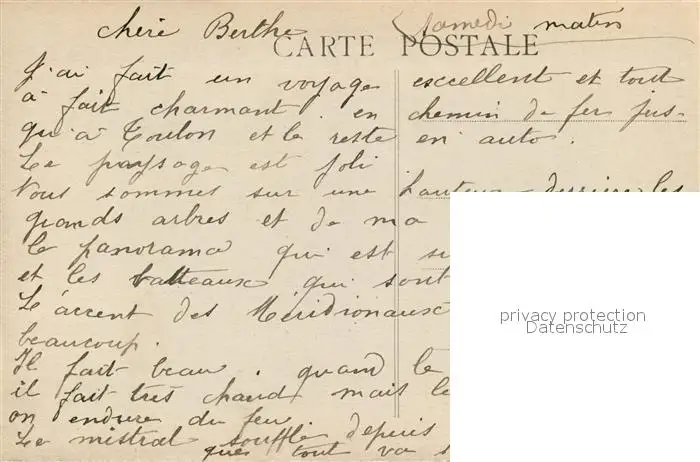 Samedi matin
chère Berthe
CARTE POSTALE
J'ai fait un voyage excellent et tout
à fait charmant. en chemin de fer jus-
qu'à Toulon et le reste en auto.
Le paysage est joli
Nous sommes sur une hauteur derrière les
grands arbres et de ma
le panorama qui est su
et les batteaux qui sont
L'accent des Méridionaux
beaucoup.
Il fait beau. quand le
il fait très chaud mais le
on endure du feu
Le mistral souffle depuis
que tout va
privacy protection
Datenschutz